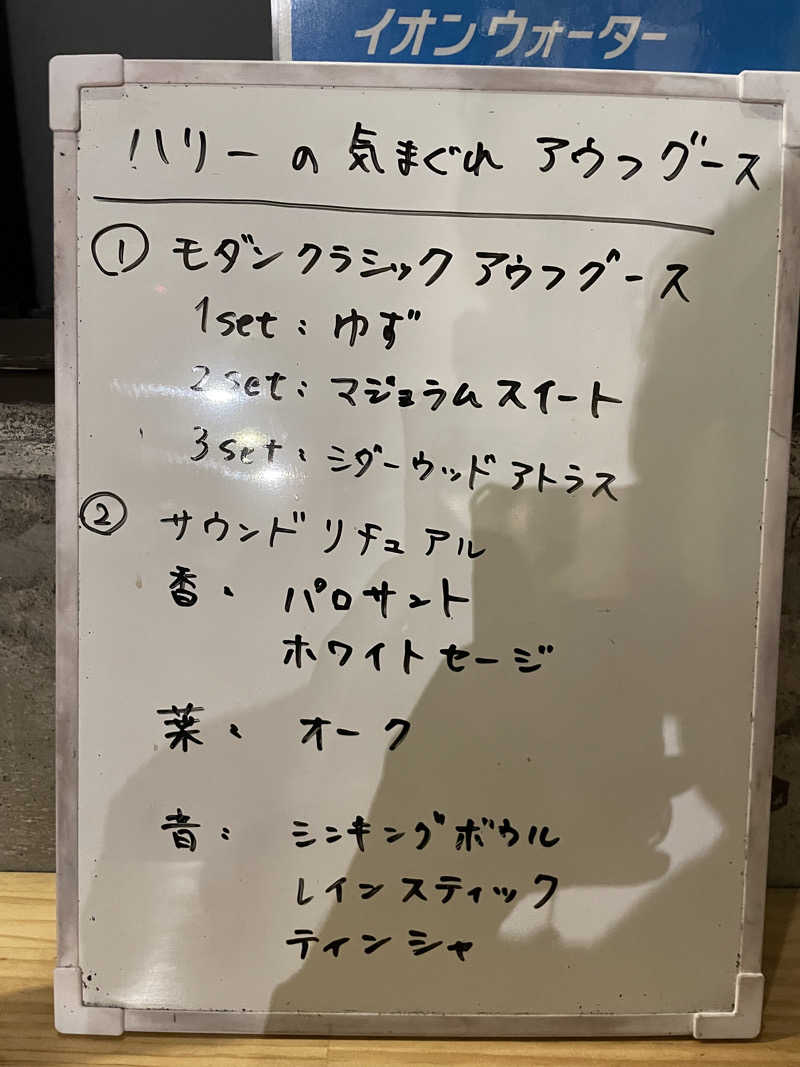 イオンウォーター
ハリーの気まぐれ アウフグース
① モダンクラシック アウフグース
1set: ゆず
2set: マジョラムスイート
3set: シダーウッドアトラス
② サウンドリチュアル
香: パロサント
ホワイトセージ
葉: オーク
音: シンキングボウル
レインスティック
ティンシャ